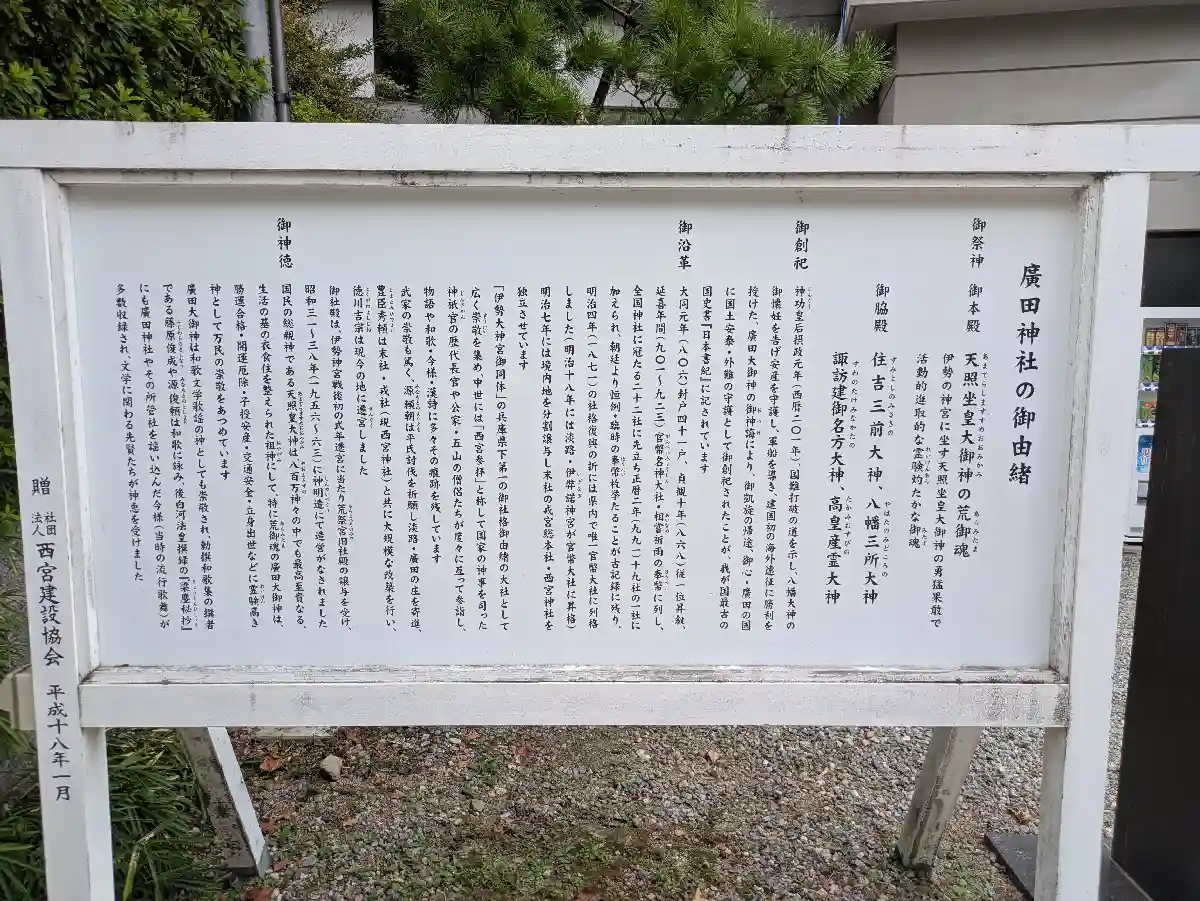 廣田神社の御由緒
御祭神 御本殿 天照坐皇大御神の荒御魂
伊勢の神宮に坐す天照坐皇大御神の勇猛果敢で
活動的進取的な霊験灼たかな御魂
御脇殿 住吉三前大神、八幡三所大神
諏訪建御名方大神、高皇産霊大神
御創祀 神功皇后摂政元年(西暦二〇一年)、国難打破の道を示し、八幡大神の
御懐妊を告げ安産を守護し、軍船を導き、建国初の海外遠征に勝利を
授けた、廣田大御神の御神誨により、御凱旋の帰途、御心・廣田の国
に国土安泰・外難の守護として御創祀されたことが、我が国最古の
国史書『日本書紀』に記されています
御沿革 大同元年(八〇六)封戸四十一戸、貞観十年(八六八)従一位昇叙、
延喜年間(九〇一〜九二三)官幣名神大社・相嘗祈雨の奉幣に列し、
全国神社に冠たる二十二社に先立ち正暦二年(九九一)十九社の一社に
加えられ、朝廷より恒例・臨時の奉幣枚挙たることが古記録に残り、
明治四年(一八七一)の社格復興の折には県内で唯一官幣大社に列格
しました(明治十八年には淡路・伊弉諾神宮が官幣大社に昇格)
明治七年には境内地を分割譲与し末社の戎宮総本社・西宮神社を
独立させています
「伊勢大神宮御同体」の兵庫県下第一の御社格御由緒の大社として
広く崇敬を集め、中世には「西宮参拝」と称して国家の神事を司った
神祇官の歴代長官や公家・五山の僧侶たちが度々に亙って参詣し、
物語や和歌・今様・漢詩に多々その痕跡を残しています
武家の崇敬も篤く、源頼朝は平氏討伐を祈願し淡路・廣田の庄を寄進、
豊臣秀頼は末社・戎社(現西宮神社)と共に大規模な改築を行い、
徳川吉宗は現今の地に遷宮しました
御社殿は、伊勢神宮戦後初の式年遷宮に当たり荒祭宮旧社殿の譲与を受け、
昭和三一〜三八年(一九五六〜六三)に神明造にて造営がなされました
御神徳 国民の総親神である天照皇大神は八百万神々の中でも最高至貴なる、
生活の基の衣食住を整えられた祖神にして、特に荒御魂の廣田大御神は、
勝運合格・開運厄除・子授安産・交通安全・立身出世などに霊験高き
神として万民の崇敬をあつめています
廣田大御神は和歌文学歌謡の神としても崇敬され、勅撰和歌集の撰者
である藤原俊成や源俊頼は和歌に詠み、後白河法皇撰録の『梁塵秘抄』
にも廣田神社やその所管社を謡い込んだ今様(当時の流行歌舞)が
多数収録され、文学に関わる先賢たちが神恵を受けました
贈 社団法人 西宮建設協会 平成十八年一月